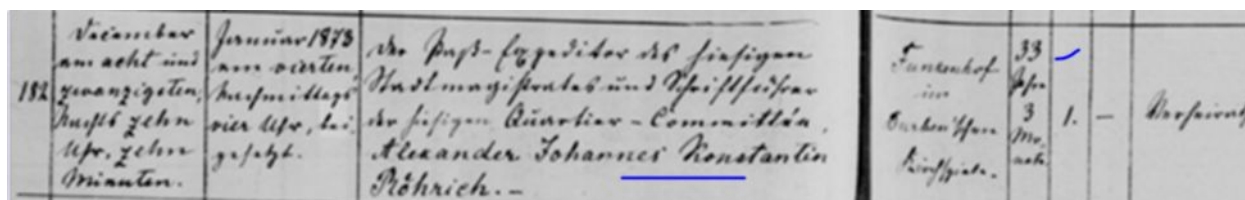 182
December
am acht und
zwanzigsten,
Nachts zehn
Uhr, zehn
Minuten.
Januar 1873
am vierten,
Nachmittags
vier Uhr, bei
gesetzt.
Der Paß-Expeditor des hiesigen
Stadtmagistrates und Schriftführer
der hiesigen Quartier-Committée,
Alexander Johannes Konstantin
Röhrich. –
im
Kirchspiele.
33
Jahre
3
Mo-
nate
1.
–
Verheirath